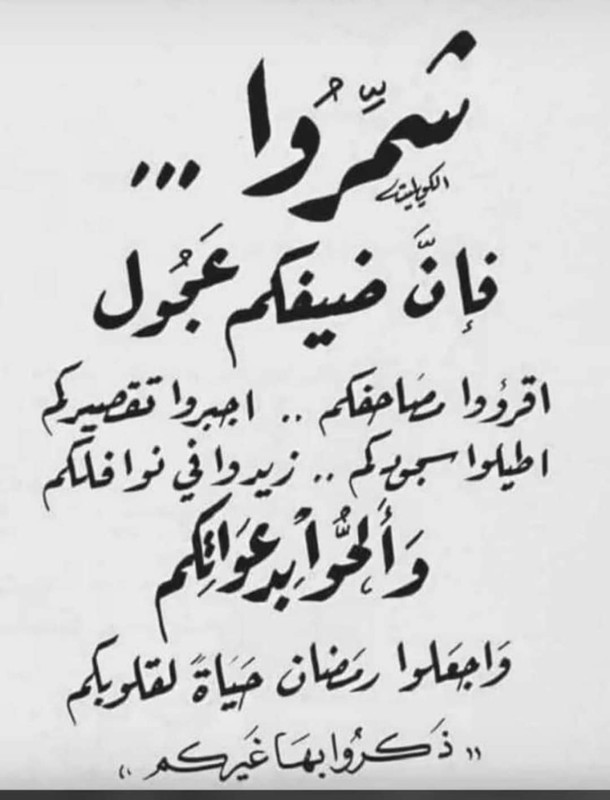 شَمِّرُوا ...
فَإِنَّ ضيفكم عَجُول
اقرؤوا مصَاحفكم .. اجبروا تقصيركم
اطيلوا سجودكم .. زيدوا في نوافلكم
وَأَلِحُّوا بِدعَوَاتِكم
وَاجعَلوا رمَضان حَيَاةً لقلوبكم
"ذَكِّرُوا بهَا غَيركم"